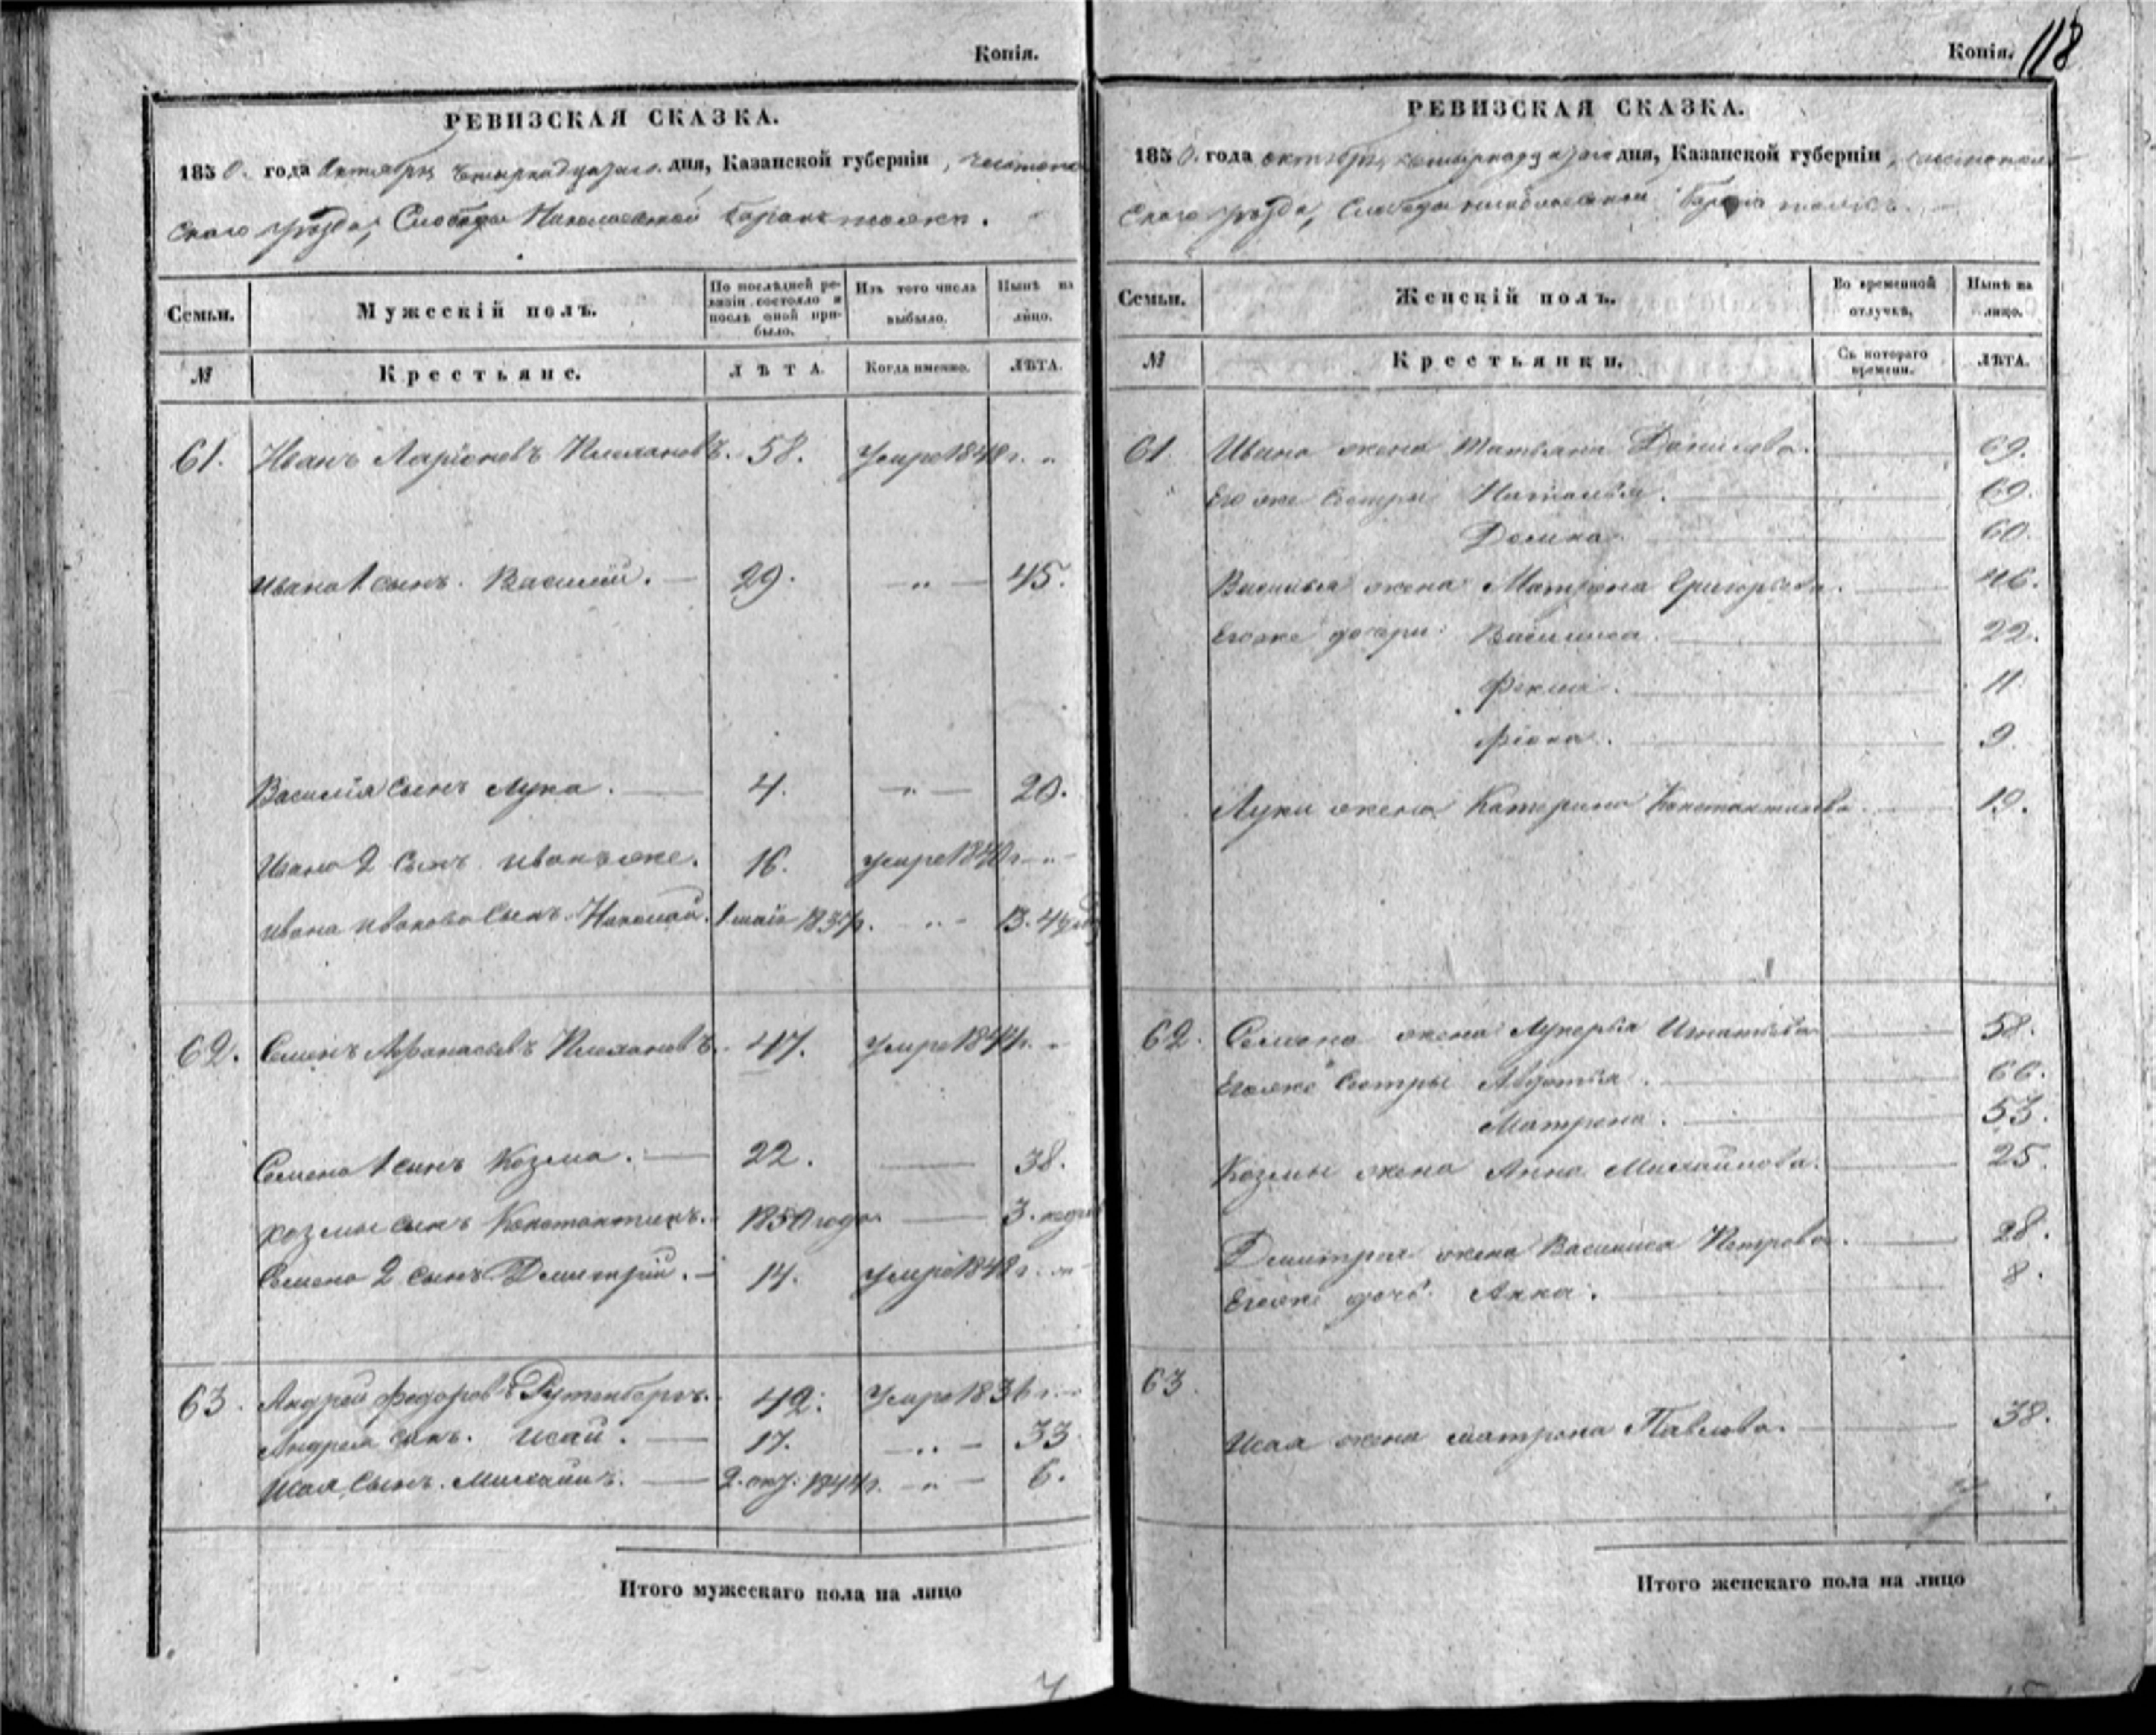 Копія.
РЕВИЗСКАЯ СКАЗКА.
1850. года Октября четырнадцатаго дня, Казанской губерніи, Чистополь
скаго уѣзда, Слободы Николаевской Баранъ тожъ.
Семьи. Мужескій полъ. По послѣдней ревизіи состояло и послѣ оной прибыло. Изъ того числа выбыло. Нынѣ на лицо.
№ Крестьяне. ЛѢТА. Когда именно. ЛѢТА.
61. Иванъ Ларіоновъ Плехановъ. 58. Умре 1848 г. „
Ивана 1 сынъ. Василій. — 29. — „ — 45.
Василія сынъ Лука. — 4. — „ — 20.
Ивана 2 сынъ Иванъ же. 16. умре 1840 г — „ —
Ивана Иванова сынъ Николай. 1 маія 1837 г. - „ - 13. 4
62. Семенъ Афанасьевъ Плехановъ. 47. Умре 1844 г. „
Семена 1 сынъ Козма. — 22. — 38.
Козмы сынъ Константинъ. 1850 года — 3. недел
Семена 2 сынъ Дмитрій. — 14. умре 1848 г. „
63. Андрей Федоровъ 42. Умре 1836 г.
Андрея сынъ. Исай. — 17. — „ — 33
Исая сынъ. Михаилъ. — 2. окт: 1844 г. — „ — 6.
Итого мужескаго пола на лицо
Копія. 118
РЕВИЗСКАЯ СКАЗКА.
1850. года октября, четырнадцатаго дня, Казанской губерніи, Чистополь
скаго уѣзда, Слободы Николаевской Баранъ тожъ.
Семьи. Женскій полъ. Во временной отлучкѣ. Нынѣ на лицо.
№ Крестьянки. Съ котораго времени. ЛѢТА.
61 Ивана жена Татьяна Данилова. — 69.
Его же сестры Наталья. — 69.
Домна — 60.
Василья жена Матрена Григорьева. — 46.
Егоже дочери: Василиса. — 22.
Фекла. — 11.
Фіона. — 9.
Луки жена Катерина Константинова — 19.
62. Семена жена Лукерья Игнатьева — 58.
Егоже сестры Авдотья. — 66.
Матрена. — 53.
Козмы жена Анна Михайлова. — 25.
Дмитрія жена Василиса Петрова. — 28.
Егоже дочь. Анна. — 8.
63.
Исая жена Матрона Павлова. — 38.
Итого женскаго пола на лицо